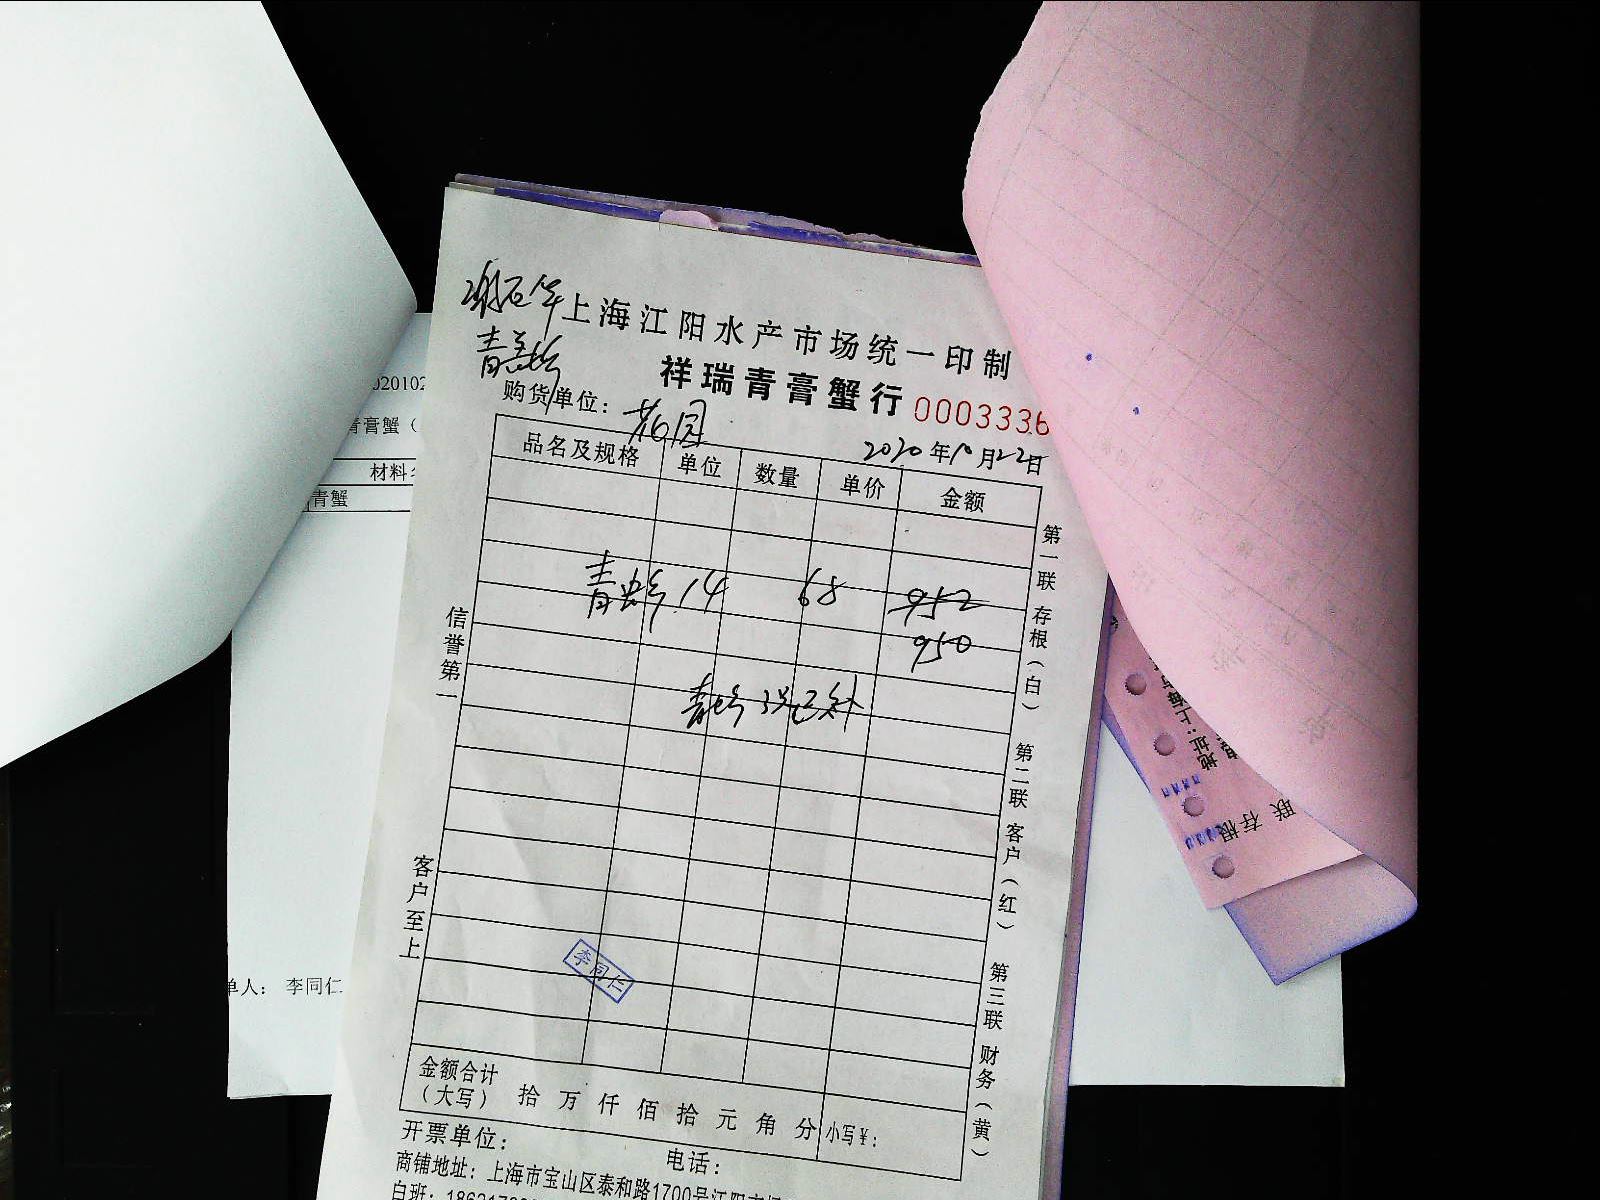 上海江阳水产市场统一印制
祥瑞青膏蟹行 0003336
购货单位: 花园
2020年10月22日
品名及规格 单位 数量 单价 金额
青蟹 14 68 952
950
青蟹 3只已补
信誉第一
客户至上
第一联 存根(白)
第二联 客户(红)
第三联 财务(黄)
李同仁
金额合计
(大写) 拾 万 仟 佰 拾 元 角 分 小写¥:
开票单位: 电话:
商铺地址: 上海市宝山区泰和路1700号江阳
白班:
青膏蟹(
材料
青蟹
单人: 李同仁
地址:上海
联 存根